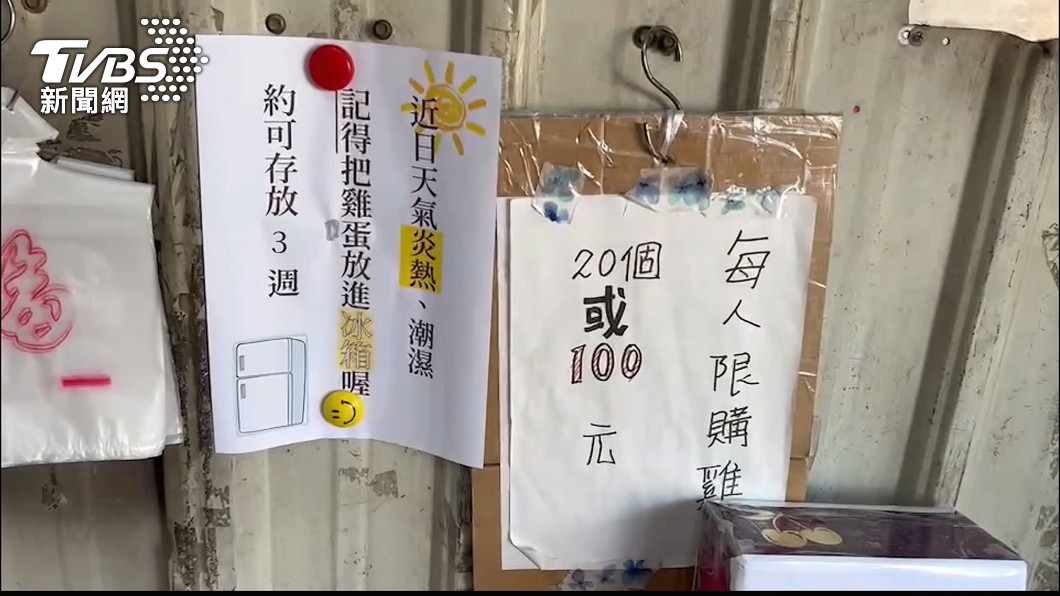 TVBS
新聞網
近日天氣炎熱、潮濕
記得把雞蛋放進冰箱喔
約可存放3週
每人限購雞
20個
或
100
元